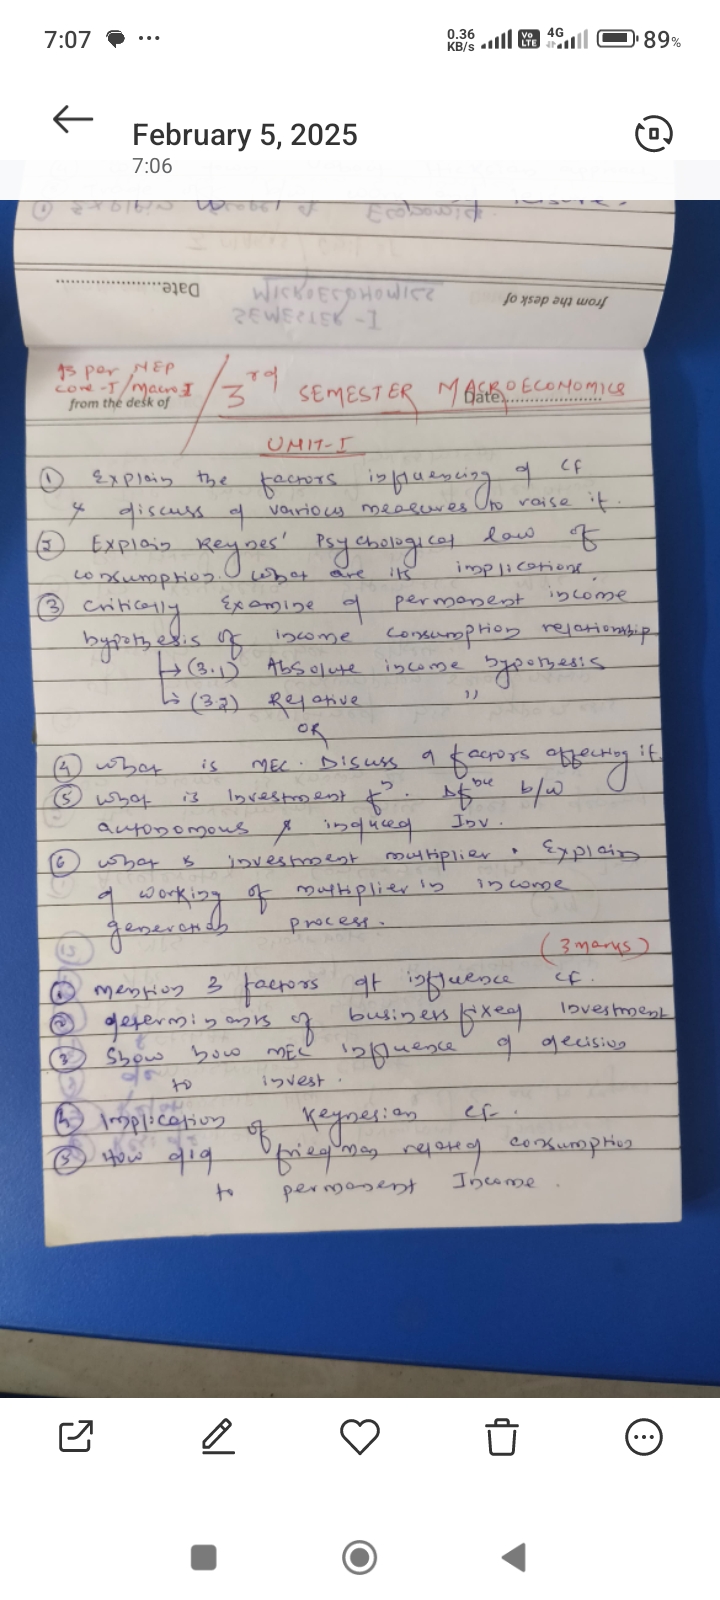 7:07
0.36 KB/s
Vo LTE
4G
89%
February 5, 2025
7:06
Explain
Date
MICROECONOMICS
from the desk of
SEMESTER - I
As per NEP
core-I/Macro I
from the desk of
3rd SEMESTER MACROECONOMICS
Date
UNIT-I
① Explain the factors influencing d CF
& discuss d various measures to raise it.
② Explain Keynes' Psychological law of
consumption. What are its implications.
③ critically Examine d permanent income
hypothesis of income consumption relationship
↳ (3.1) Absolute income hypothesis
↳ (3.2) Relative "
OR
④ what is MEC. Discuss d factors affecting it.
⑤ what is Investment fn. Dfbw b/w
autonomous & induced Inv.
⑥ what is investment multiplier. Explain
d working of multiplier in income
generation process.
(3 marks)
① mention 3 factors dt influence CF.
② determinants of business fixed Investment
③ Show how MEC influence d decision
to invest.
④ Implication of Keynesian CF.
⑤ How did friedman related consumption
to permanent Income.